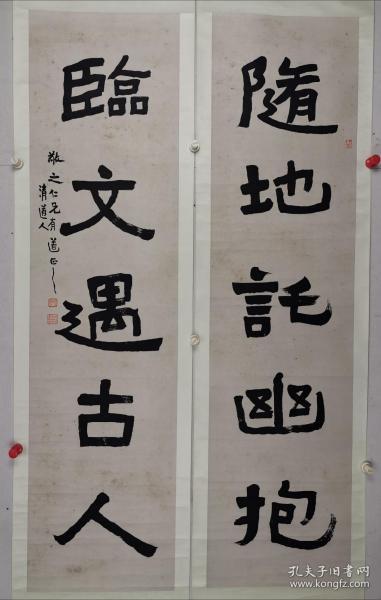 隨地託幽抱
臨文遇古人
敬之仁兄有道正之
清道人
孔夫子旧书网
www.kongfz.com